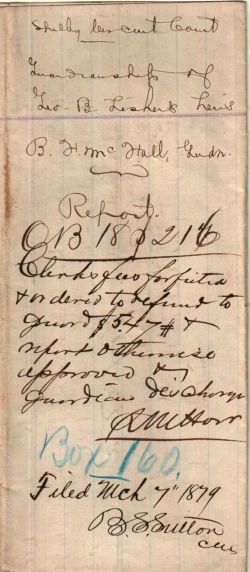 Shelby Circuit Court
Guardianship of
Geo. B. Lisher's heirs
B. F. McFall, Gudn.
Report.
OB 18 P 216
Clerks fees forfeited
& ordered to refund to
guard $5.47 &
report otherwise
approved &
guardian discharged
Box 160
Filed Mch 7" 1879
B. E. Sutton